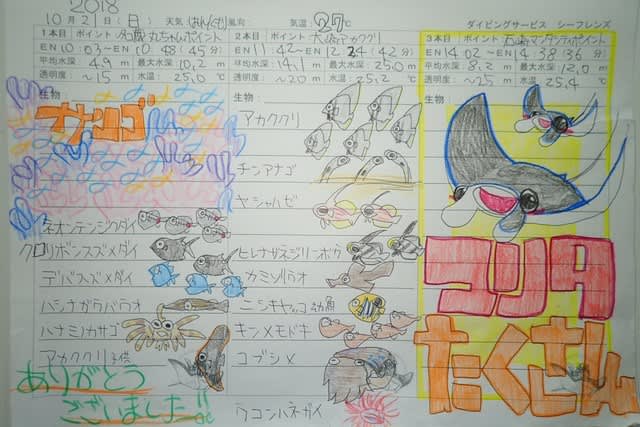 2018
10月21日(日) 天気(はれ/くもり)風向: 気温:27℃ ダイビングサービス シーフレンズ
1本目 ポイント 名蔵丸ちゃんポイント
EN 10:03〜EX 10:48(45分)
平均水深:4.9 m 最大水深10.2 m
透明度:〜15 m 水温:25.0℃
生物:
ナンヨゴ
ネオンテンジクダイ
クロリボンスズメダイ
デバスズメダイ
ハシナガウバウオ
ハナミノカサゴ
アカククリ子供
ありがとう
ございました!!
2本目 ポイント 大崎アカククリ
EN 11:42〜EX 12:24(42分)
平均水深:14.1 m 最大水深:25.0 m
透明度:〜20 m 水温:25.2℃
生物:
アカククリ
チンアナゴ
ヤシャハゼ
ヒレナガネジリンボウ
カミソリウオ
ニシキヤッコ幼魚
キンメモドキ
コブシメ
ウコンハネガイ
3本目 ポイント 石崎マンタシティポイント
EN 14:02〜EX 14:38(36分)
平均水深:8.2 m 最大水深:12.0 m
透明度:〜25 m 水温:25.4℃
生物:
マンタ
たくさん